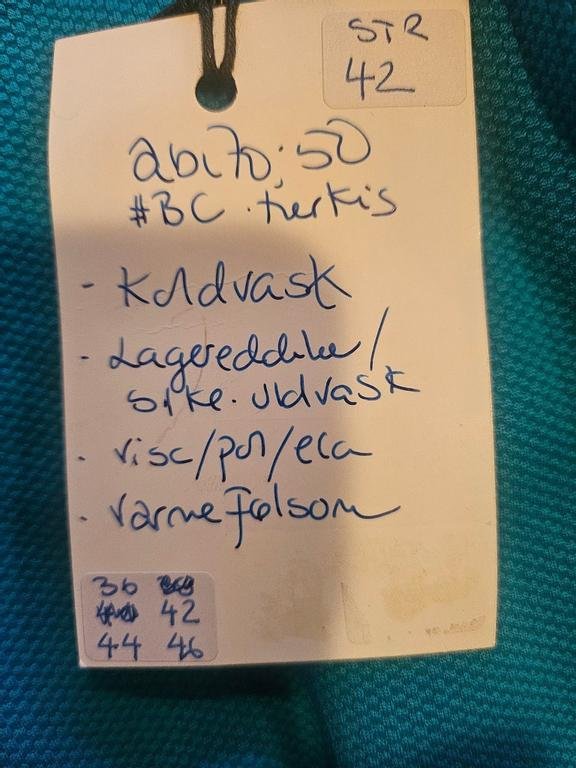 STR
42
abito; 50
#BC. turkis
- Koldvask
- Lagereddike/
silke. uldvask
- visc/pol/ela
- varmefølsom
36
42
44 46